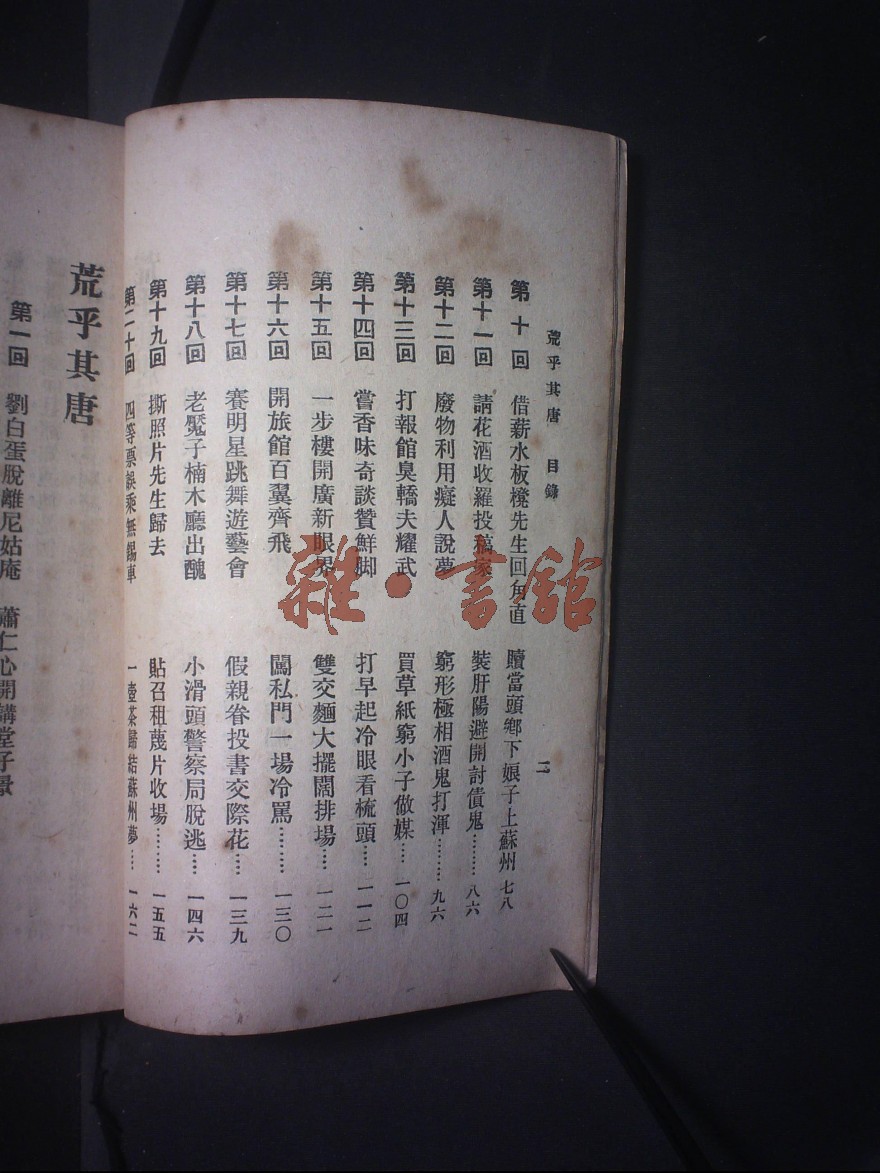 荒乎其唐 目錄 二
第十回 借薪水板櫈先生回角直 贖當頭鄉下娘子上蘇州 七八
第十一回 請花酒收羅投稿家 裝肝陽避開討債鬼……… 八六
第十二回 廢物利用癡人說夢 窮形極相酒鬼打渾……… 九六
第十三回 打報館臭轎夫耀武 買草紙窮小子做媒…… 一〇四
第十四回 嘗香味奇談贊鮮脚 打早起冷眼看梳頭…… 一一二
第十五回 一步樓開廣新眼界 雙交麵大擺闊排場…… 一二一
第十六回 開旅館百翼齊飛 闖私門一場冷罵……… 一三〇
第十七回 賽明星跳舞遊藝會 假親眷投書交際花…… 一三九
第十八回 老魘子楠木廳出醜 小滑頭警察局脫逃…… 一四六
第十九回 撕照片先生歸去 貼召租蔑片收場……… 一五五
第二十回 四等票誤乘無錫車 一壺茶歸結蘇州夢…… 一六二
荒乎其唐
第一回 劉白蛋脫離尼姑庵 蕭仁心開講堂子景
雜·書館